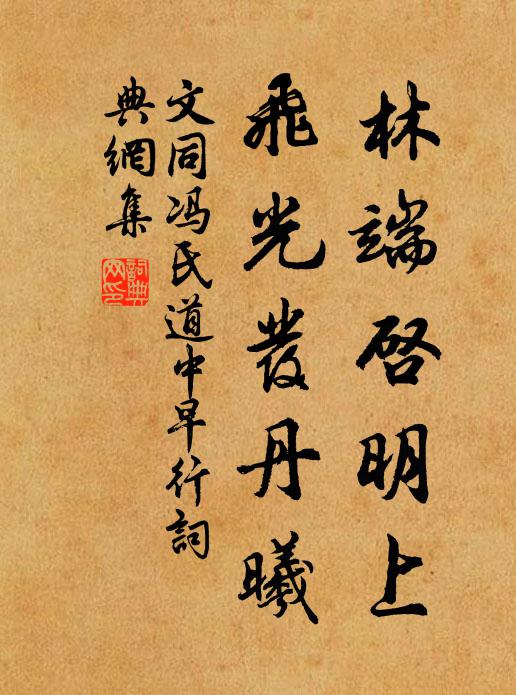 林端启明上
飛光發丹曦
文同冯氏道中早行詞
典網集
詞典
网印